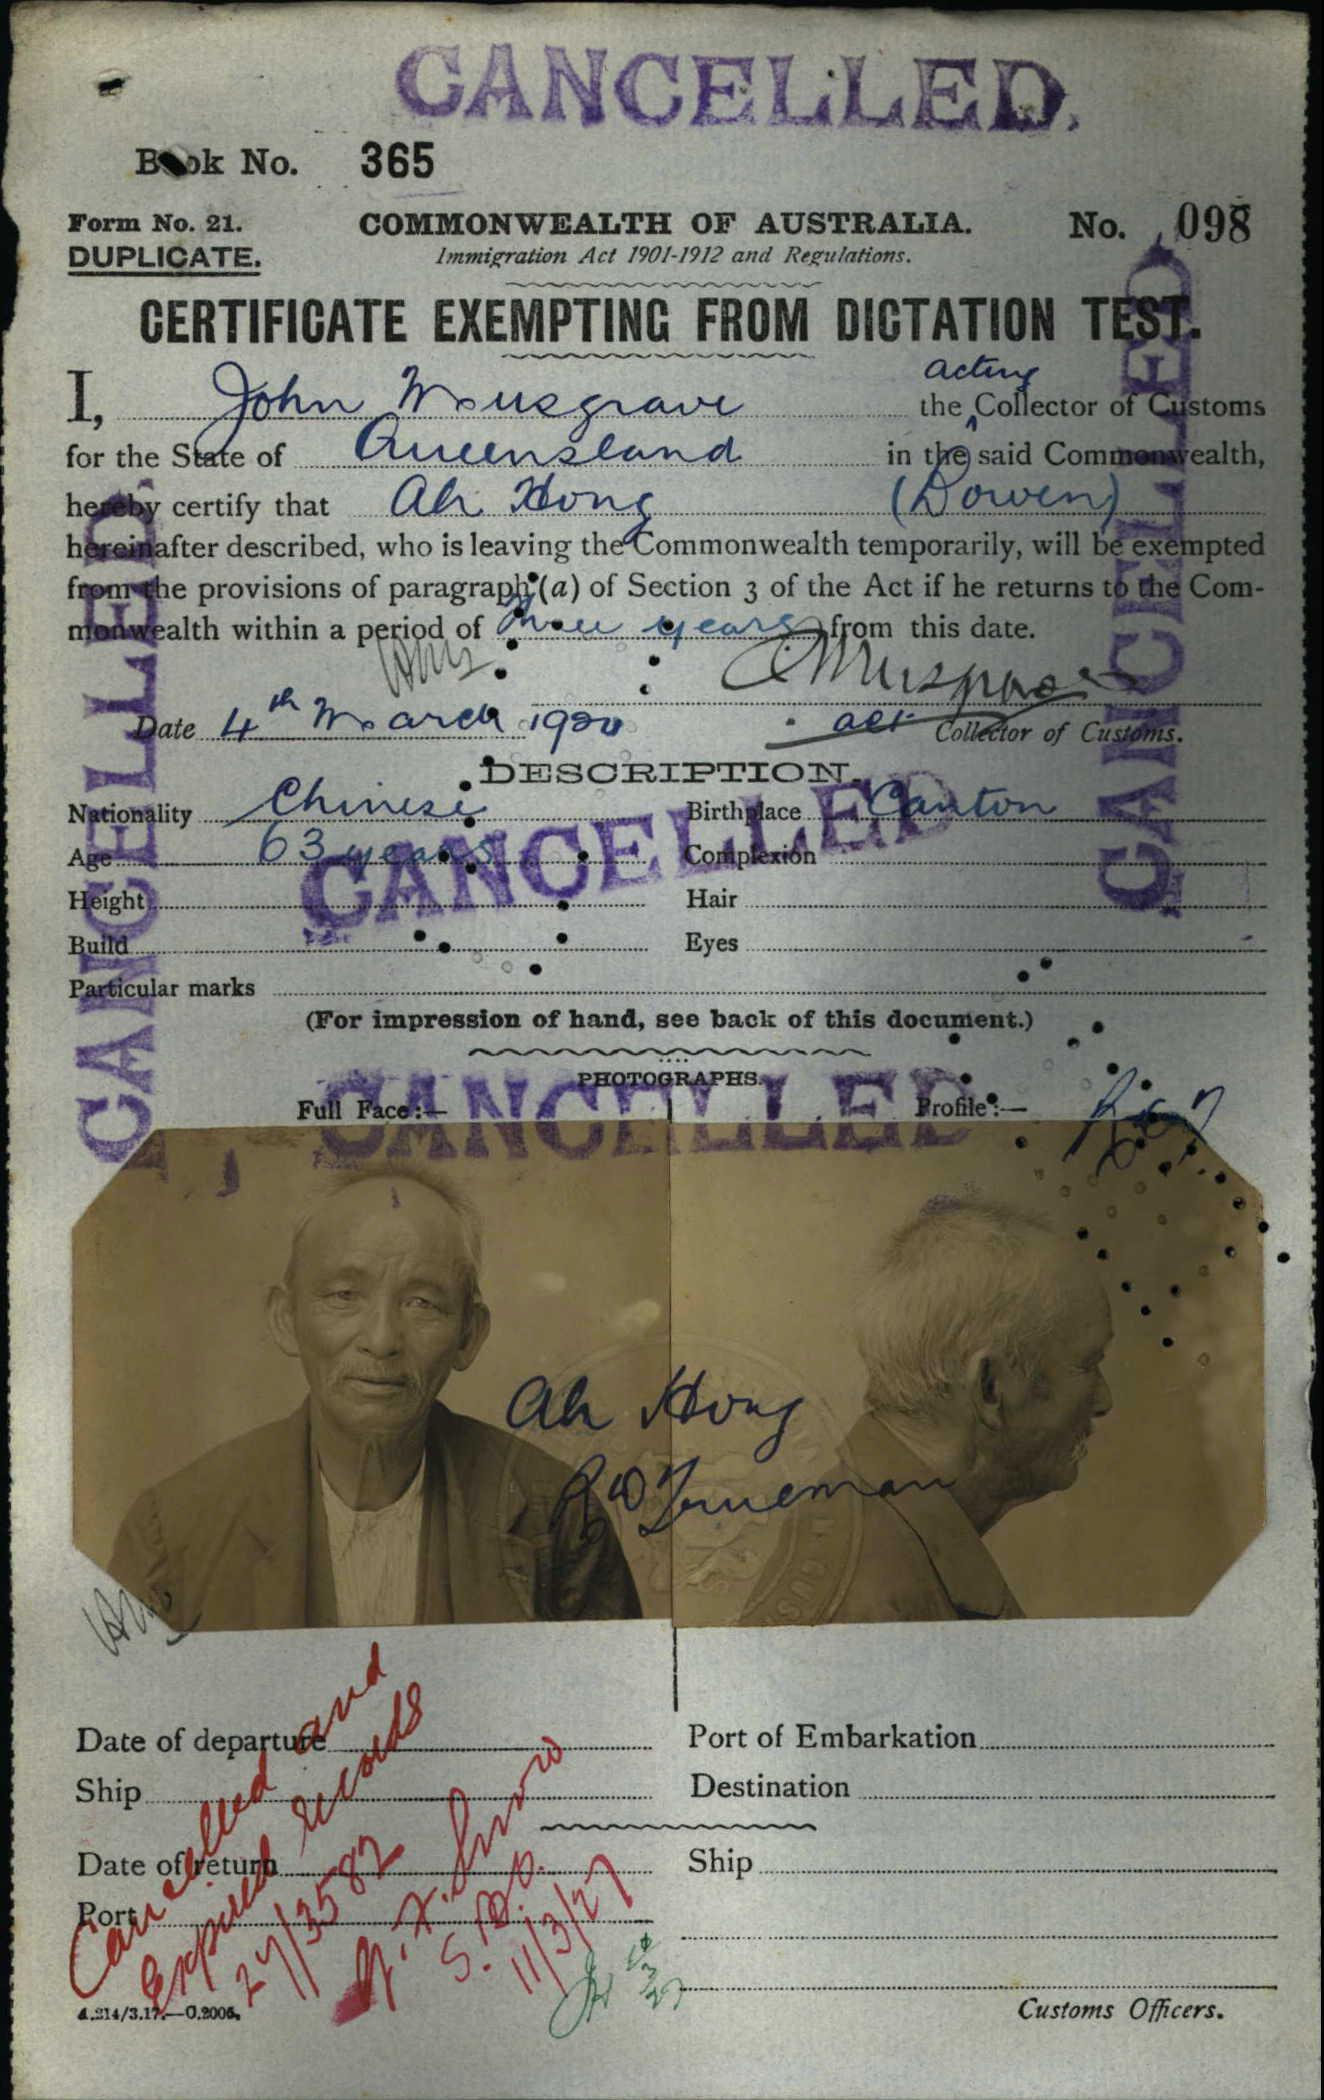 CANCELLED.
Book No. 365
Form No. 21.
COMMONWEALTH OF AUSTRALIA.
No. 098
DUPLICATE.
Immigration Act 1901-1912 and Regulations.
CERTIFICATE EXEMPTING FROM DICTATION TEST.
acting
I, John Musgrave the Collector of Customs
for the State of Queensland in the said Commonwealth,
hereby certify that Ah Hong (Bowen)
hereinafter described, who is leaving the Commonwealth temporarily, will be exempted
from the provisions of paragraph (a) of Section 3 of the Act if he returns to the Com-
monwealth within a period of three years from this date.
Musgrave
Date 4th March 1920 act Collector of Customs.
CANCELLED.
CANCELLED.
DESCRIPTION.
Nationality Chinese Birthplace Canton
Age 63 years Complexion
CANCELLED
Height Hair
Build Eyes
Particular marks
(For impression of hand, see back of this document.)
PHOTOGRAPHS.
CANCELLED
Full Face:— Profile:—
Ah Hong
R W Trueman
Date of departure Port of Embarkation
Ship Destination
Date of return Ship
Port
Cancelled and
Expired records
27/3582
S.
11/3/27
A.214/3.17.—C.2006.
Customs Officers.